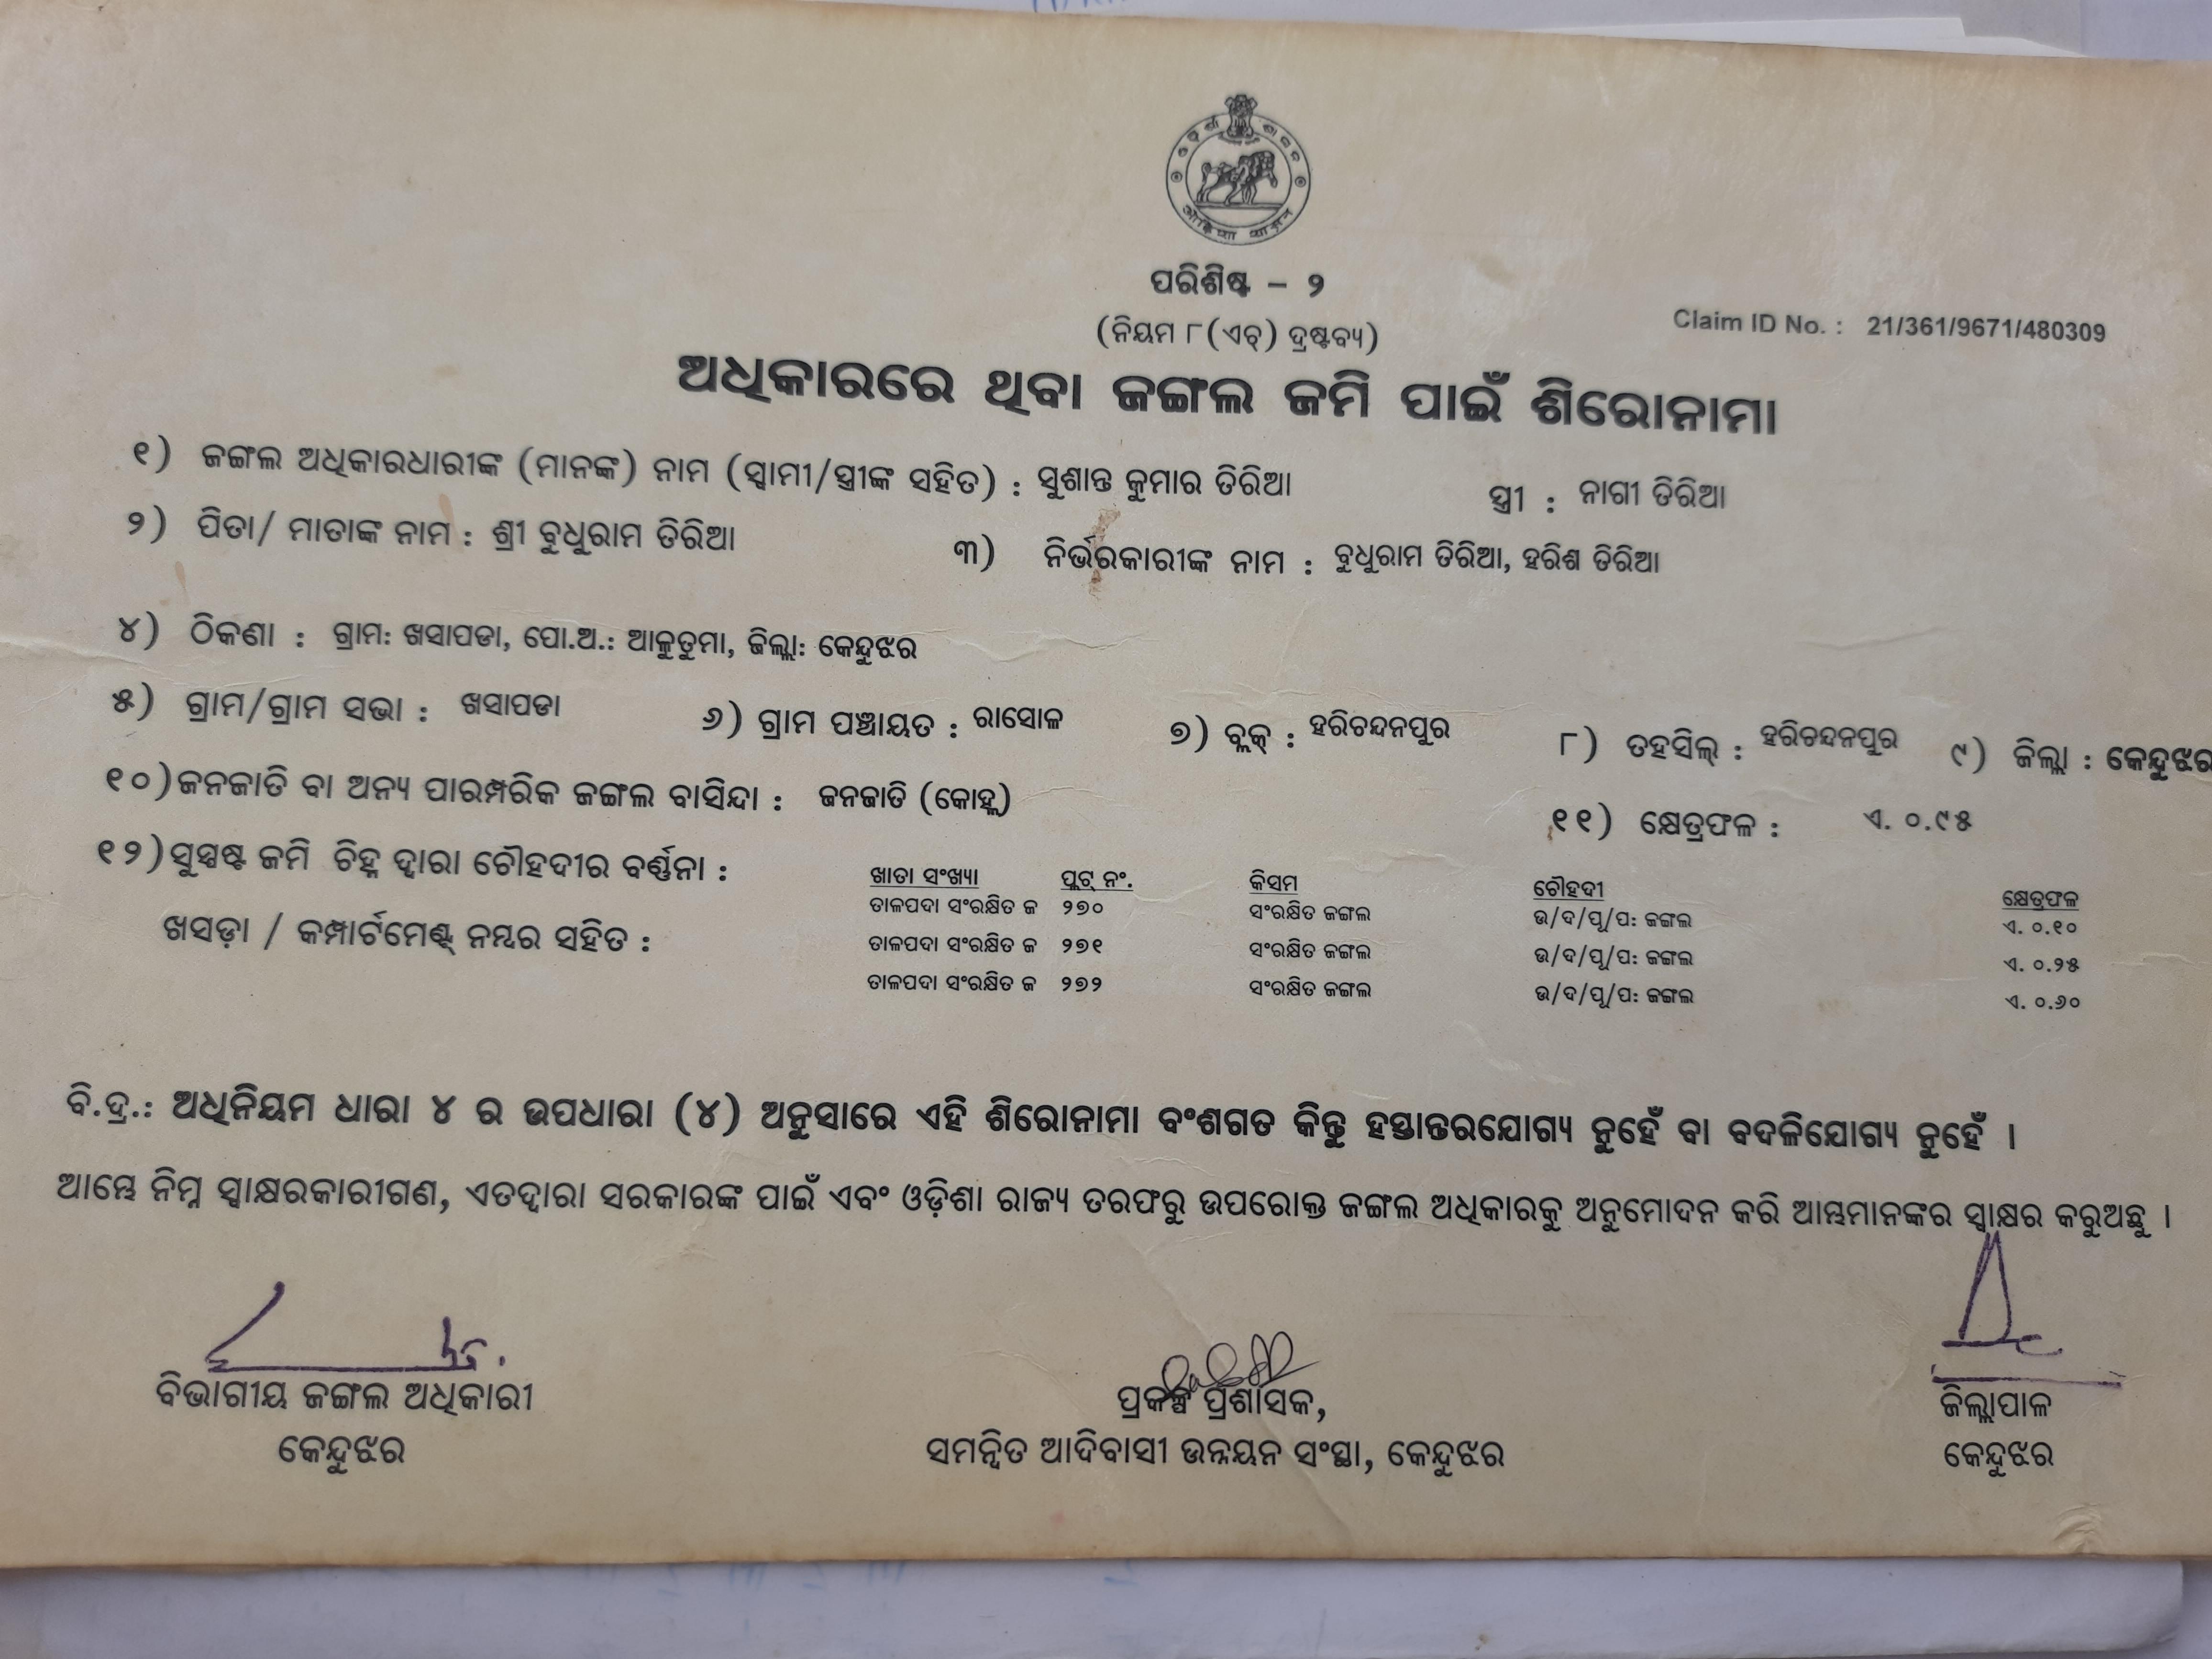 ପରିଶିଷ୍ଟ – ୨
(ନିୟମ ୮(ଏଚ୍) ଦ୍ରଷ୍ଟବ୍ୟ)
Claim ID No. : 21/361/9671/480309
ଅଧିକାରରେ ଥିବା ଜଙ୍ଗଲ ଜମି ପାଇଁ ଶିରୋନାମା
୧) ଜଙ୍ଗଲ ଅଧିକାରଧାରୀଙ୍କ (ମାନଙ୍କ) ନାମ (ସ୍ୱାମୀ/ସ୍ତ୍ରୀଙ୍କ ସହିତ) : ସୁଶାନ୍ତ କୁମାର ତିରିଆ ସ୍ତ୍ରୀ : ନାଗୀ ତିରିଆ
୨) ପିତା/ ମାତାଙ୍କ ନାମ : ଶ୍ରୀ ବୁଧୁରାମ ତିରିଆ ୩) ନିର୍ଭରକାରୀଙ୍କ ନାମ : ବୁଧୁରାମ ତିରିଆ, ହରିଶ ତିରିଆ
୪) ଠିକଣା : ଗ୍ରାମ: ଖସାପଡା, ପୋ.ଅ.: ଆକୁତୁମା, ଜିଲ୍ଲା: କେନ୍ଦୁଝର
୫) ଗ୍ରାମ/ଗ୍ରାମ ସଭା : ଖସାପଡା ୬) ଗ୍ରାମ ପଞ୍ଚାୟତ : ରାସୋଳ ୭) ବ୍ଲକ୍ : ହରିଚନ୍ଦନପୁର ୮) ତହସିଲ୍ : ହରିଚନ୍ଦନପୁର ୯) ଜିଲ୍ଲା : କେନ୍ଦୁଝର
୧୦) ଜନଜାତି ବା ଅନ୍ୟ ପାରମ୍ପରିକ ଜଙ୍ଗଲ ବାସିନ୍ଦା : ଜନଜାତି (କୋହ୍ଲ) ୧୧) କ୍ଷେତ୍ରଫଳ : ଏ. ୦.୯୫
୧୨) ସୁସ୍ପଷ୍ଟ ଜମି ଚିହ୍ନ ଦ୍ୱାରା ଚୌହଦୀର ବର୍ଣ୍ଣନା :
ଖସଡ଼ା / କମ୍ପାର୍ଟମେଣ୍ଟ୍ ନମ୍ବର ସହିତ :
ଖାତା ସଂଖ୍ୟା ପ୍ଲଟ୍ ନଂ. କିସମ ଚୌହଦୀ କ୍ଷେତ୍ରଫଳ
ତାଳପଦା ସଂରକ୍ଷିତ ଜ ୨୭୦ ସଂରକ୍ଷିତ ଜଙ୍ଗଲ ଉ/ଦ/ପୂ/ପ: ଜଙ୍ଗଲ ଏ. ୦.୧୦
ତାଳପଦା ସଂରକ୍ଷିତ ଜ ୨୭୧ ସଂରକ୍ଷିତ ଜଙ୍ଗଲ ଉ/ଦ/ପୂ/ପ: ଜଙ୍ଗଲ ଏ. ୦.୨୫
ତାଳପଦା ସଂରକ୍ଷିତ ଜ ୨୭୨ ସଂରକ୍ଷିତ ଜଙ୍ଗଲ ଉ/ଦ/ପୂ/ପ: ଜଙ୍ଗଲ ଏ. ୦.୬୦
ବି.ଦ୍ର.: ଅଧିନିୟମ ଧାରା ୪ ର ଉପଧାରା (୪) ଅନୁସାରେ ଏହି ଶିରୋନାମା ବଂଶଗତ କିନ୍ତୁ ହସ୍ତାନ୍ତରଯୋଗ୍ୟ ନୁହେଁ ବା ବଦଳିଯୋଗ୍ୟ ନୁହେଁ ।
ଆମ୍ଭେ ନିମ୍ନ ସ୍ୱାକ୍ଷରକାରୀଗଣ, ଏତଦ୍ୱାରା ସରକାରଙ୍କ ପାଇଁ ଏବଂ ଓଡ଼ିଶା ରାଜ୍ୟ ତରଫରୁ ଉପରୋକ୍ତ ଜଙ୍ଗଲ ଅଧିକାରକୁ ଅନୁମୋଦନ କରି ଆମ୍ଭମାନଙ୍କର ସ୍ୱାକ୍ଷର କରୁଅଛୁ ।
ବିଭାଗୀୟ ଜଙ୍ଗଲ ଅଧିକାରୀ
କେନ୍ଦୁଝର
ପ୍ରକଳ୍ପ ପ୍ରଶାସକ,
ସମନ୍ୱିତ ଆଦିବାସୀ ଉନ୍ନୟନ ସଂସ୍ଥା, କେନ୍ଦୁଝର
ଜିଲ୍ଲାପାଳ
କେନ୍ଦୁଝର